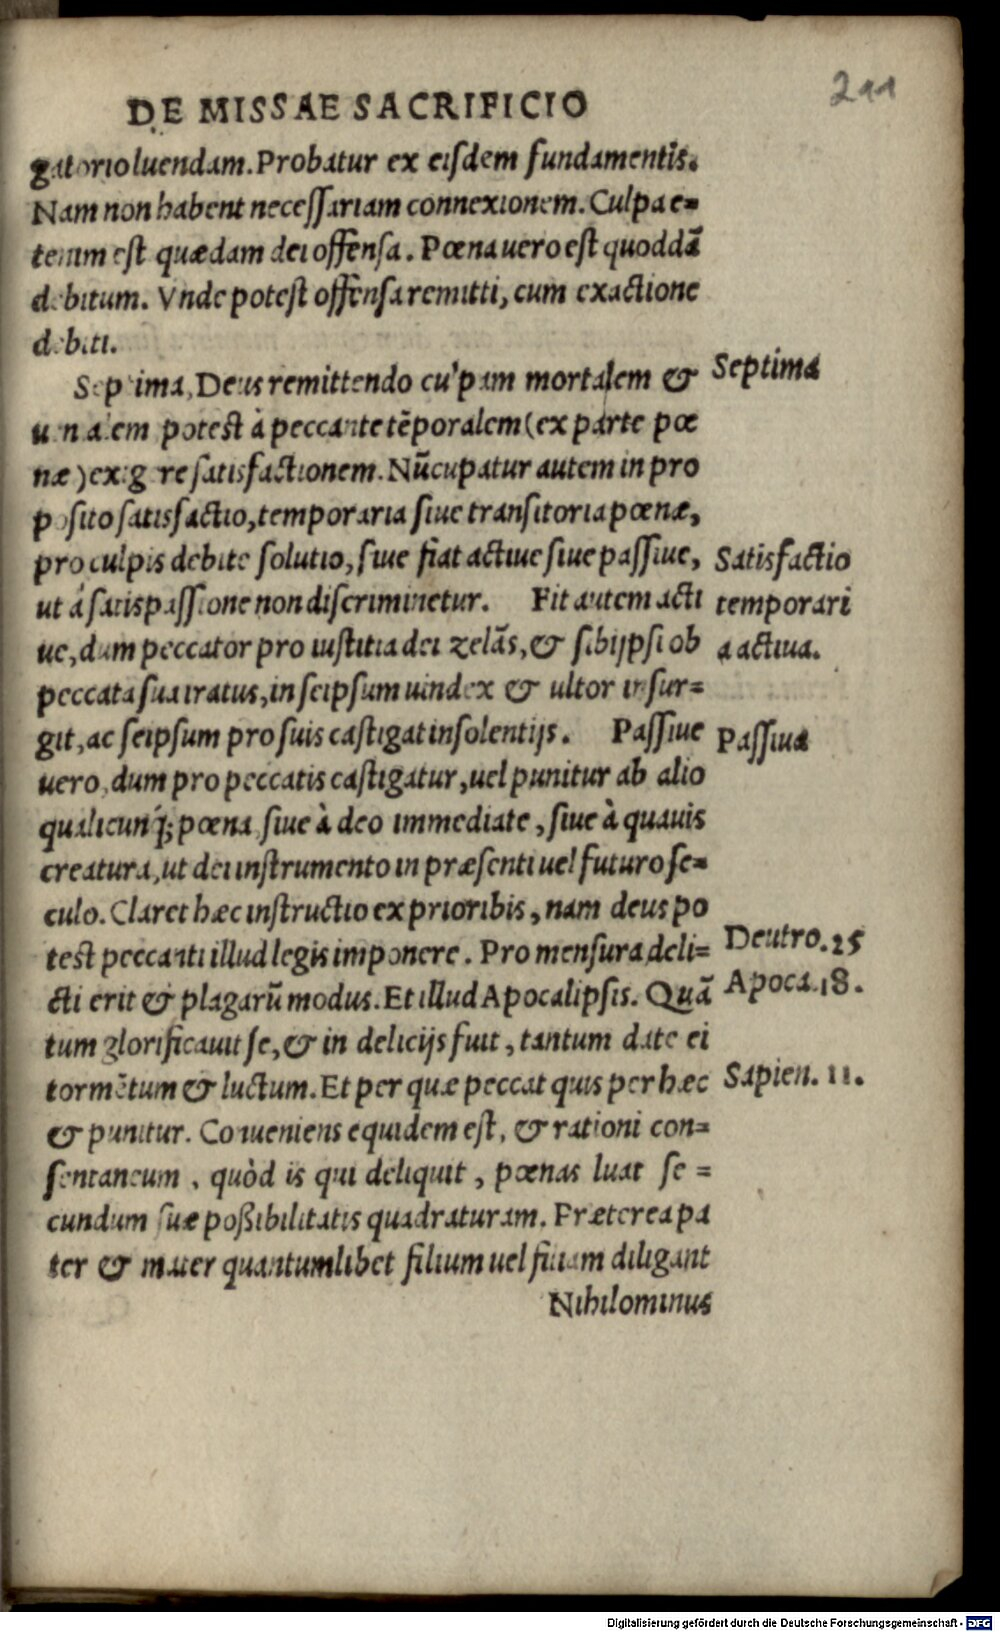 211
DE MISSAE SACRIFICIO
gatorio luendam. Probatur ex eisdem fundamentis.
Nam non habent necessariam connexionem. Culpa e=
tenim est quædam dei offensa. Pœna uero est quoddã
debitum. Vnde potest offensa remitti, cum exactione
debiti.
Septima, Deus remittendo culpam mortalem &
uenialem potest à peccante tẽporalem (ex parte pœ
næ) exigere satisfactionem. Nũcupatur autem in pro
posito satisfactio, temporaria siue transitoria pœnæ,
pro culpis debite solutio, siue fiat actiue siue passiue,
ut á satispassione non discriminetur. Fit autem acti
ue, dum peccator pro iustitia dei zelãs, & sibijpsi ob
peccata sua iratus, in seipsum uindex & ultor insur=
git, ac seipsum pro suis castigat insolentijs. Passiue
uero, dum pro peccatis castigatur, uel punitur ab alio
qualicunq; pœna, siue à deo immediate, siue à quauis
creatura, ut dei instrumento in præsenti uel futuro se=
culo. Claret hæc instructio ex prioribis, nam deus po
test peccanti illud legis imponere. Pro mensura deli=
cti erit & plagarũ modus. Et illud Apocalipsis. Quã
tum glorificauit se, & in delicijs fuit, tantum date ei
tormẽtum & luctum. Et per quæ peccat quis per hæc
& punitur. Conueniens equidem est, & rationi con=
sentaneum, quòd is qui deliquit, pœnas luat se=
cundum suæ poßibilitatis quadraturam. Præterea pa
ter & mater quantumlibet filium uel filiam diligant
Nihilominus
Septima
Satisfactio
temporari
a actiua.
Passiua
Deutro. 25
Apoca. 18.
Sapien. 11.
Digitalisierung gefördert durch die Deutsche Forschungsgemeinschaft - DFG